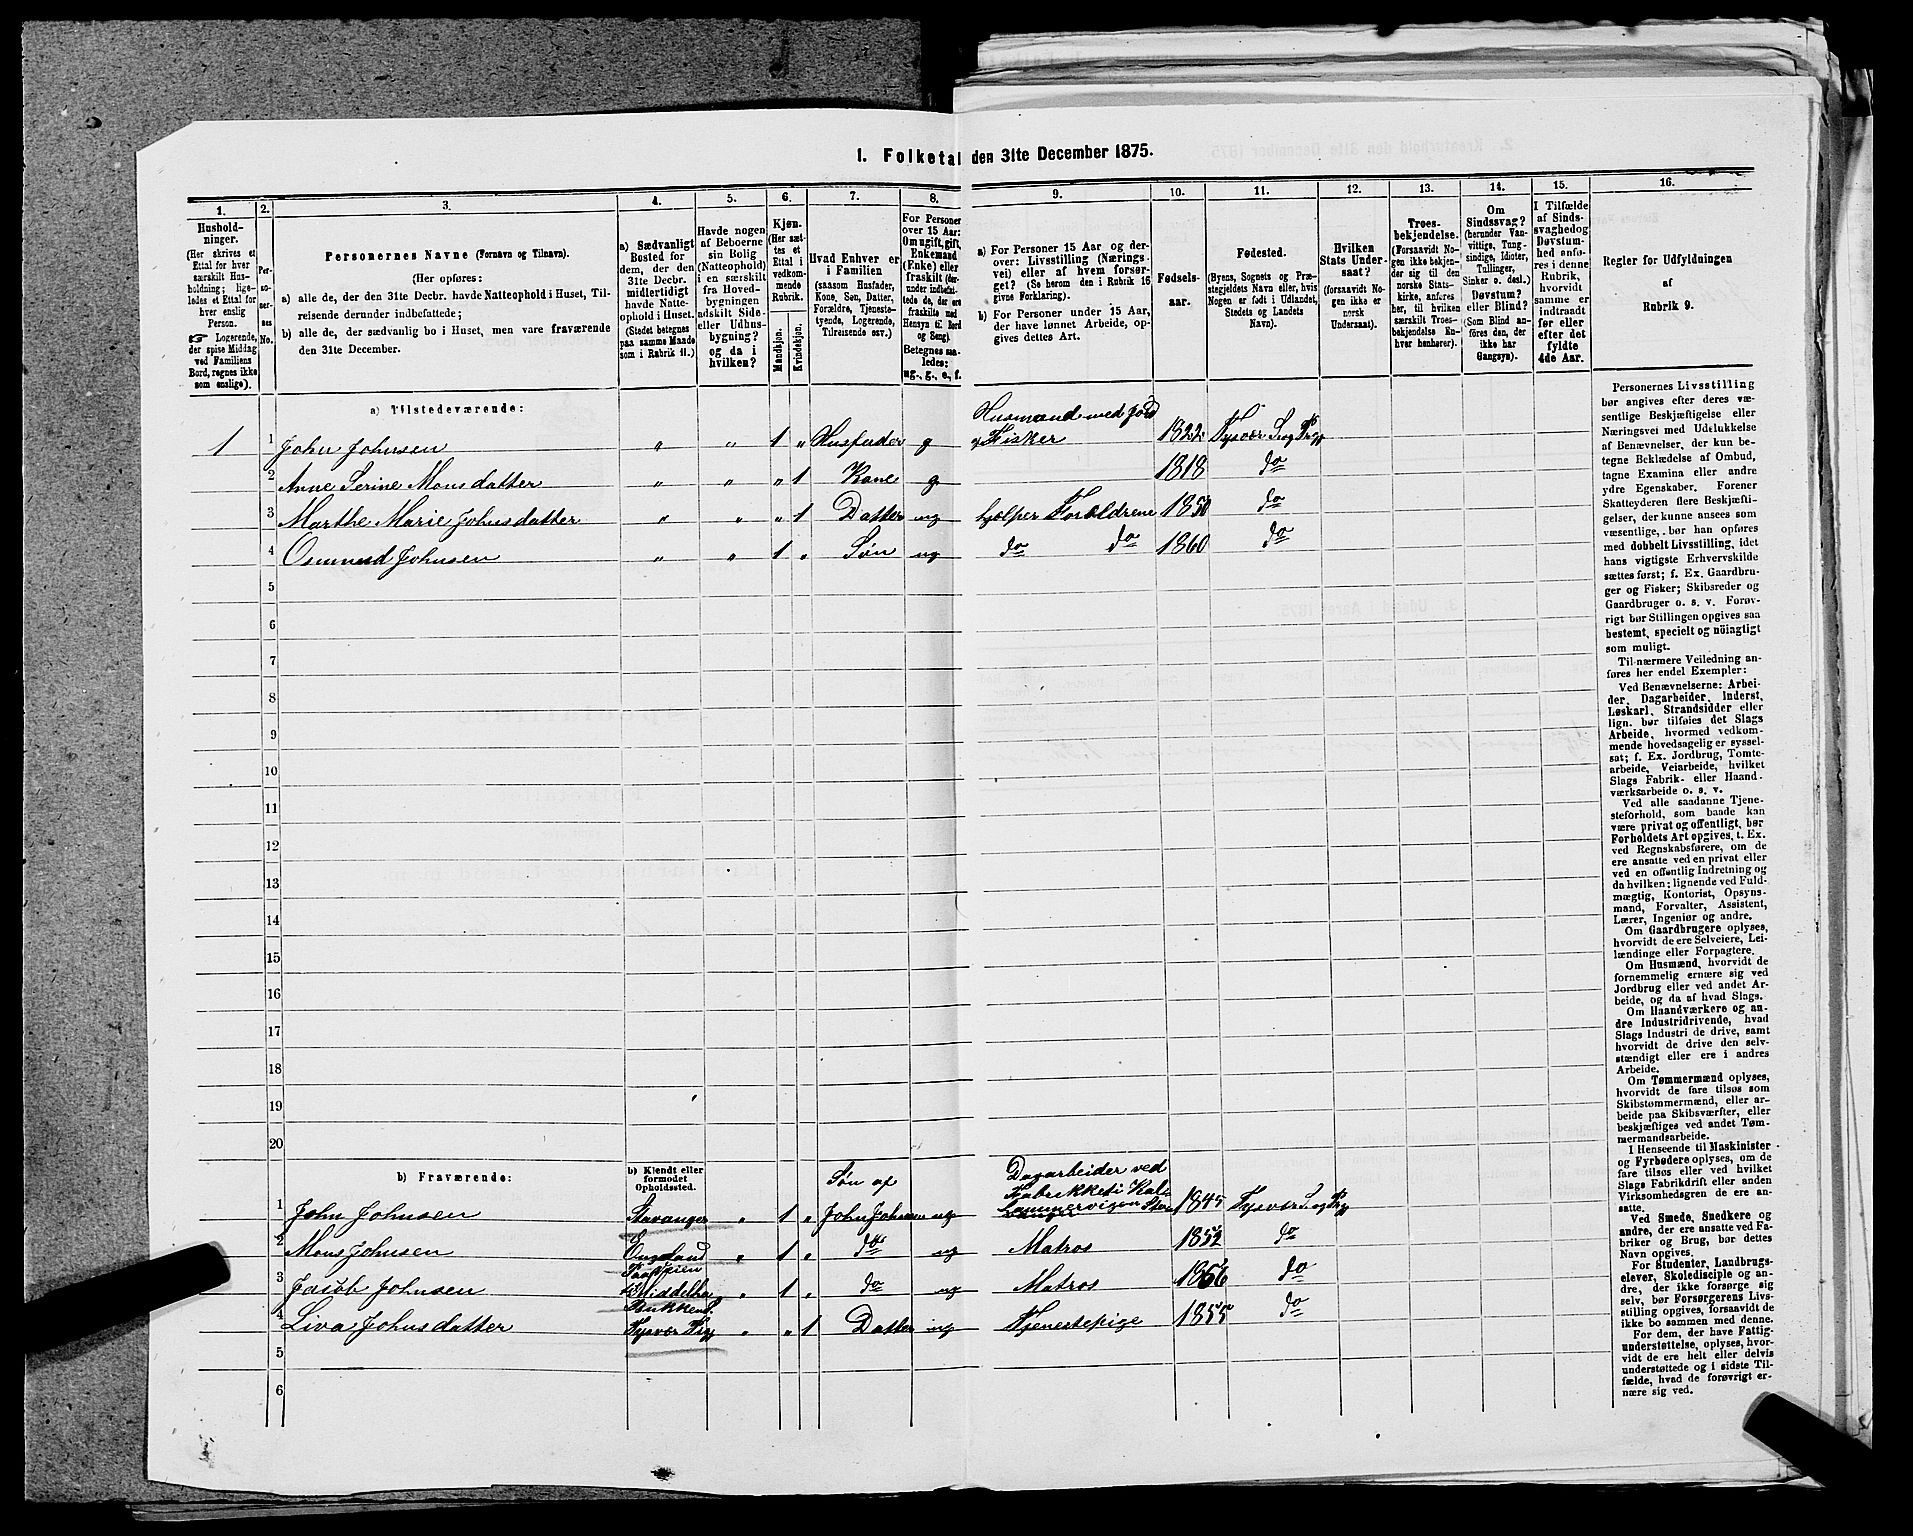 1. Folketal den 31te December 1875.
1.
2.
3.
4.
5.
6.
7.
8.
9.
10.
11.
12.
13.
14.
15.
16.
Hushold-
ninger.
(Her skrives et
Ettal for hver
særskilt Hus-
holdning; lige-
ledes et Ettal for
hver enslig
Person.
☞ Logerende,
der spise Middag
ved Familiens
Bord, regnes ikke
som enslige).
Per-
so-
ner-
nes
No.
Personernes Navne (Fornavn og Tilnavn).
(Her opføres:
a) alle de, der den 31te Decbr. havde Natteophold i Huset, Til-
reisende derunder indbefattede;
b) alle de, der sædvanlig bo i Huset, men vare fraværende
den 31te December.
a) Sædvanligt
Bosted for
dem, der den
31te Decbr.
midlertidigt
havde Natte-
ophold i Huset.
(Stedet betegnes
paa samme Maade
som i Rubrik 11.)
Havde nogen
af Beboerne
sin Bolig
(Natteophold)
i en særskilt
fra Hoved-
bygningen
adskilt Side-
eller Udhus-
bygning?
og da i
hvilken?
Kjøn.
(Her sæt-
tes et
Ettal i
vedkom-
mende
Rubrik.
Mandkjøn.
Kvindekjøn.
Hvad Enhver er
i Familien
(saasom Husfader,
Kone, Søn, Datter,
Forældre, Tjeneste-
tyende, Logerende,
Tilreisende osv.)
For Personer
over 15 Aar:
Om ugift, gift,
Enkemand
(Enke) eller
fraskilt (der-
under indbefat-
tede de, der ere
fraskilte med
Hensyn til Bord
og Seng).
Betegnes saa-
ledes:
ug., g., e., f.
a) For Personer 15 Aar og der-
over: Livsstilling (Nærings-
vei) eller af hvem forsør-
get? (Se herom den i Rubrik 16
givne Forklaring).
b) For Personer under 15 Aar,
der have lønnet Arbeide, op-
gives dettes Art.
Fødsels-
aar.
Fødested.
(Byens, Sognets og Præ-
stegjeldets Navn eller, hvis
Nogen er født i Udlandet,
Stedets og Landets
Navn).
Hvilken
Stats Under-
saat?
(forsaavidt No-
gen ikke er
norsk
Undersaat).
Troes-
bekjendelse.
(Forsaavidt No-
gen ikke bekjen-
der sig til den
norske Stats-
kirke, anføres
her, til hvilken
særskilt Troes-
bekjendelse En-
hver henhører).
Om
Sindssvag?
(herunder Van-
vittige, Tung-
sindige, Idioter,
Tullinger,
Sinker o. desl.)
Døvstum?
eller Blind?
(Som Blind an-
føres den, der
ikke har
Gangsyn).
I Tilfælde
af Sinds-
svaghed og
Døvstum-
hed anfø-
res i denne
Rubrik,
hvorvidt
samme er
indtraadt
før eller
efter det
fyldte
4de Aar.
Regler for Udfyldningen
af
Rubrik 9.
a) Tilstedeværende:
1 1 John Johnsen „ „ 1 „ Husfader g Husmand med Jord
og Fisker 1822 Tysvær Sog Prgj
2 Anne Serine Monsdatter „ „ „ 1 Kone g 1818 do
3 Marthe Marie Johnsdatter „ „ „ 1 Datter ug hjælper Forældrene 1850 do
4 Osmund Johnsen „ „ 1 „ Søn ug do do 1860 do
5
6
7
8
9
10
11
12
13
14
15
16
17
18
19
20
b) Fraværende:
b) Kjendt eller
formodet
Opholdssted.
1 John Johnsen Stavanger „ 1 „ Søn af
John Johnsen ug Dagarbeider ved
1845 Tysvær Sog Prgj
2 Mons Johnsen England „ 1 „ do ug Matros 1852 do
3 Jacob Johnsen „ 1 „ do ug Matros 1856 do
4 Liva Johnsdatter Tysvær Prgj „ „ 1 Datter ug Tjenestepige 1855 do
5
6
Personernes Livsstilling
bør angives efter deres væ-
sentlige Beskjæftigelse eller
Næringsvei med Udelukkelse
af Benævnelser, der kun be-
tegne Beklædelse af Ombud,
tagne Examina eller andre
ydre Egenskaber. Forener
Skatteyderen flere Beskjæfti-
gelser, der kunne ansees som
væsentlige, bør han opføres
med dobbelt Livsstilling, idet
hans vigtigste Erhvervskilde
sættes først; f. Ex. Gaardbru-
ger og Fisker; Skibsreder og
Gaardbruger o. s. v. Forøv-
rigt bør Stillingen opgives saa
bestemt, specielt og nöiagtigt
som muligt.
Til nærmere Veiledning an-
føres her endel Exempler:
Ved Benævnelserne: Arbei-
der, Dagarbeider, Inderst,
Løskarl, Strandsidder eller
lign. bør tilføies det Slags
Arbeide, hvormed vedkom-
mende hovedsagelig er syssel-
sat; f. Ex. Jordbrug, Tomte-
arbeide, Veiarbeide, hvilket
Slags Fabrik- eller Haand-
værksarbeide o. s. v.
Ved alle saadanne Tjene-
steforhold, som baade kan
være privat og offentligt, bør
Forholdets Art opgives, t. Ex.
ved Regnskabsførere, om de
ere ansatte ved en privat eller
ved en offentlig Indretning og
da hvilken; lignende ved Fuld-
mægtig, Kontorist, Opsyns-
mand, Forvalter, Assistent,
Lærer, Ingeniør og andre.
Om Gaardbrugere oplyses,
hvorvidt de ere Selveiere, Lei-
lændinge eller Forpagtere.
Om Husmænd, hvorvidt de
fornemmelig ernære sig ved
Jordbrug eller ved andet Ar-
beide, og da af hvad Slags.
Om Haandværkere og an-
dre Industridrivende, hvad
Slags Industri de drive, samt
hvorvidt de drive den selv-
stændigt eller ere i andres
Arbeide.
Om Tømmermænd oplyses,
hvorvidt de fare tilsøs som
Skibstømmermænd, eller ar-
beide paa Skibsværfter, eller
beskjæftiges ved andet Tøm-
mermandsarbeide.
I Henseende til Maskinister
og Fyrbødere oplyses, om de
fare tilsøs eller ved hvilket
Slags Fabrikdrift eller anden
Virksomhedsgren de ere an-
satte.
Ved Smede, Snedkere og
andre, der ere ansatte ved Fa-
briker og Brug, bør dettes
Navn opgives.
For Studenter, Landbrugs-
elever, Skoledisciple og an-
dre, der ikke forsørge sig
selv, bør Forsørgerens Livs-
stilling opgives, forsaavidt de
ikke bo sammen med denne.
For dem, der have Fattig-
understøttelse, oplyses, hvor-
vidt de ere helt eller delvis
understøttede og i sidste Til-
fælde, hvad de forøvrigt er-
nære sig ved.